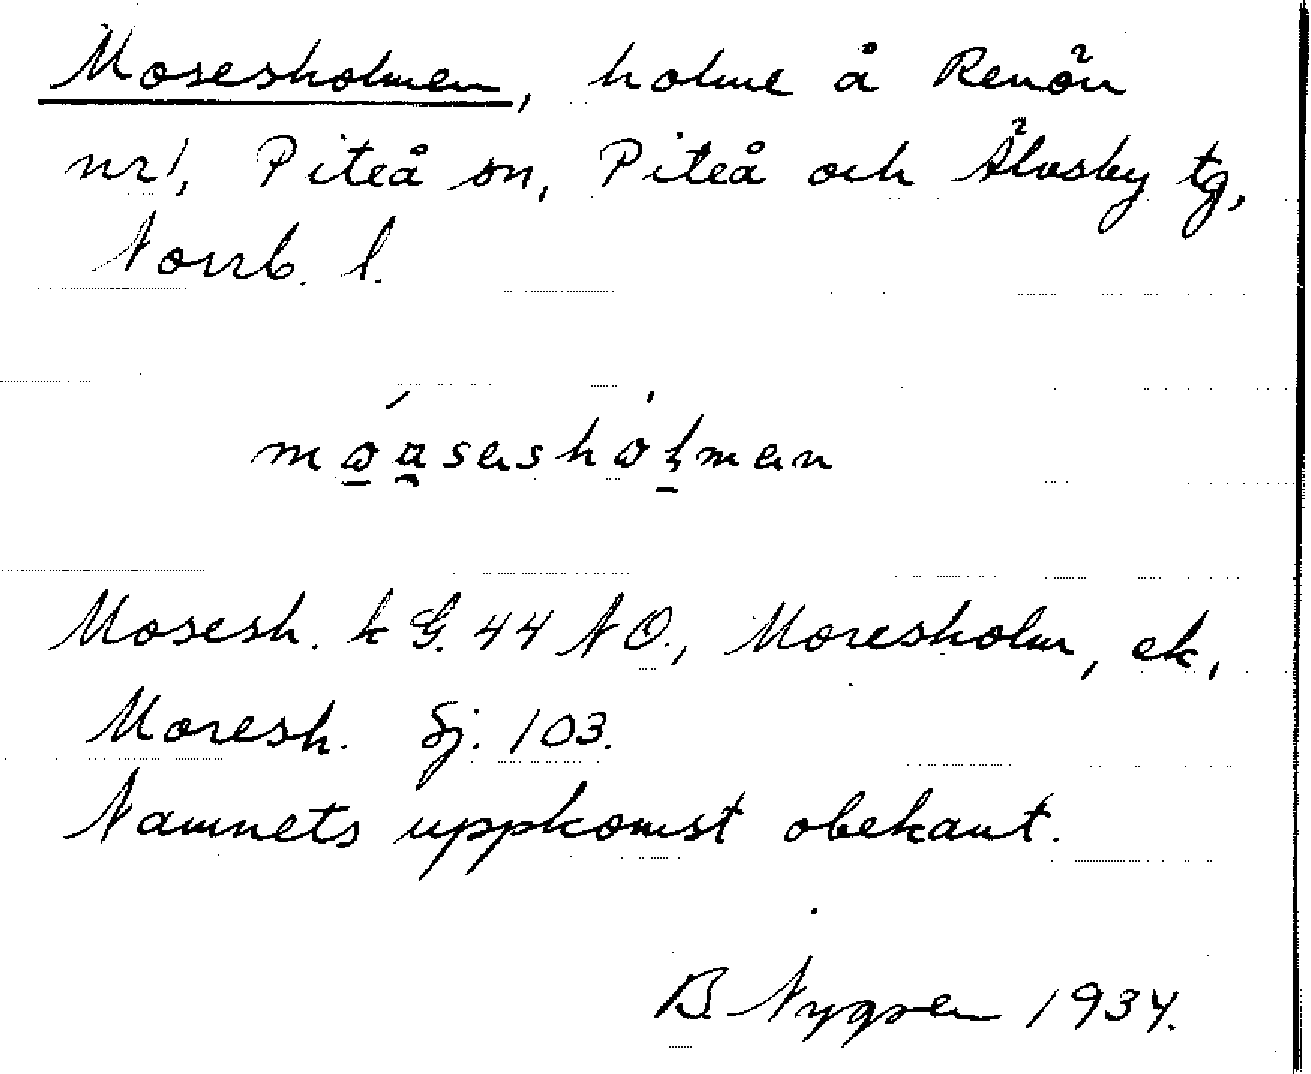 Mosesholmen, holme å Renön
nr 1, Piteå sn, Piteå och Älvsby tg,
Norrb. l.
mǫasesholmen
Mosesh. k G. 44 N O., Moresholm, ek,
Moresh. Sj. 103.
Namnets uppkomst obekant.
B. Nygren 1934.